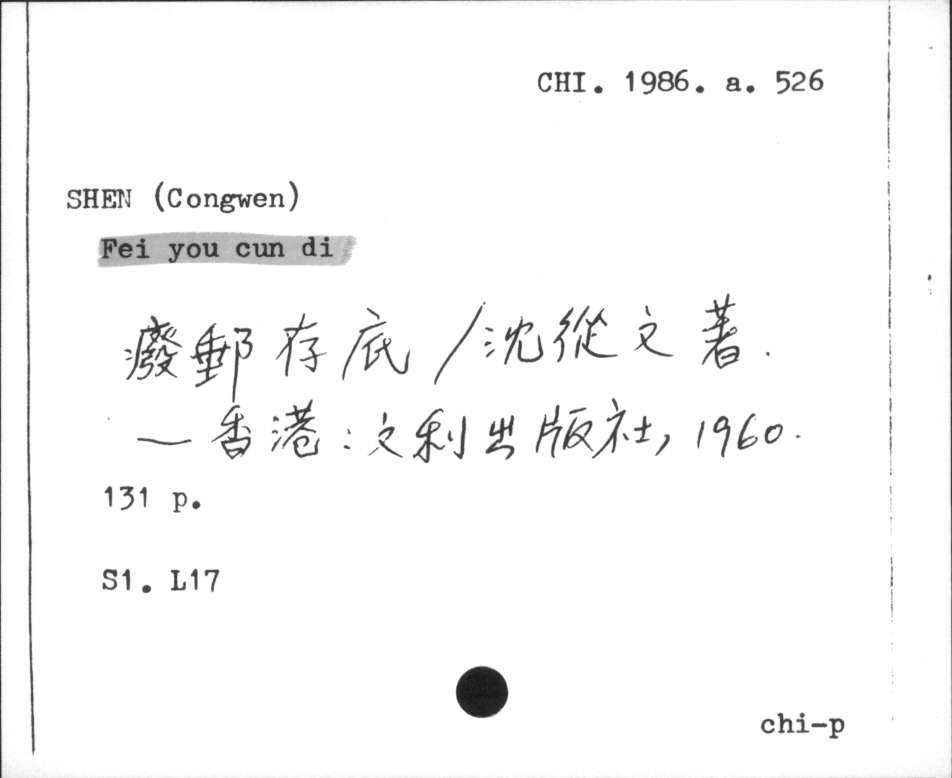 CHI. 1986. a. 526
SHEN (Congwen)
Fei you cun di
廢郵存底 / 沈從文著.
— 香港 : 文利出版社, 1960.
131 p.
S1. L17
chi-p